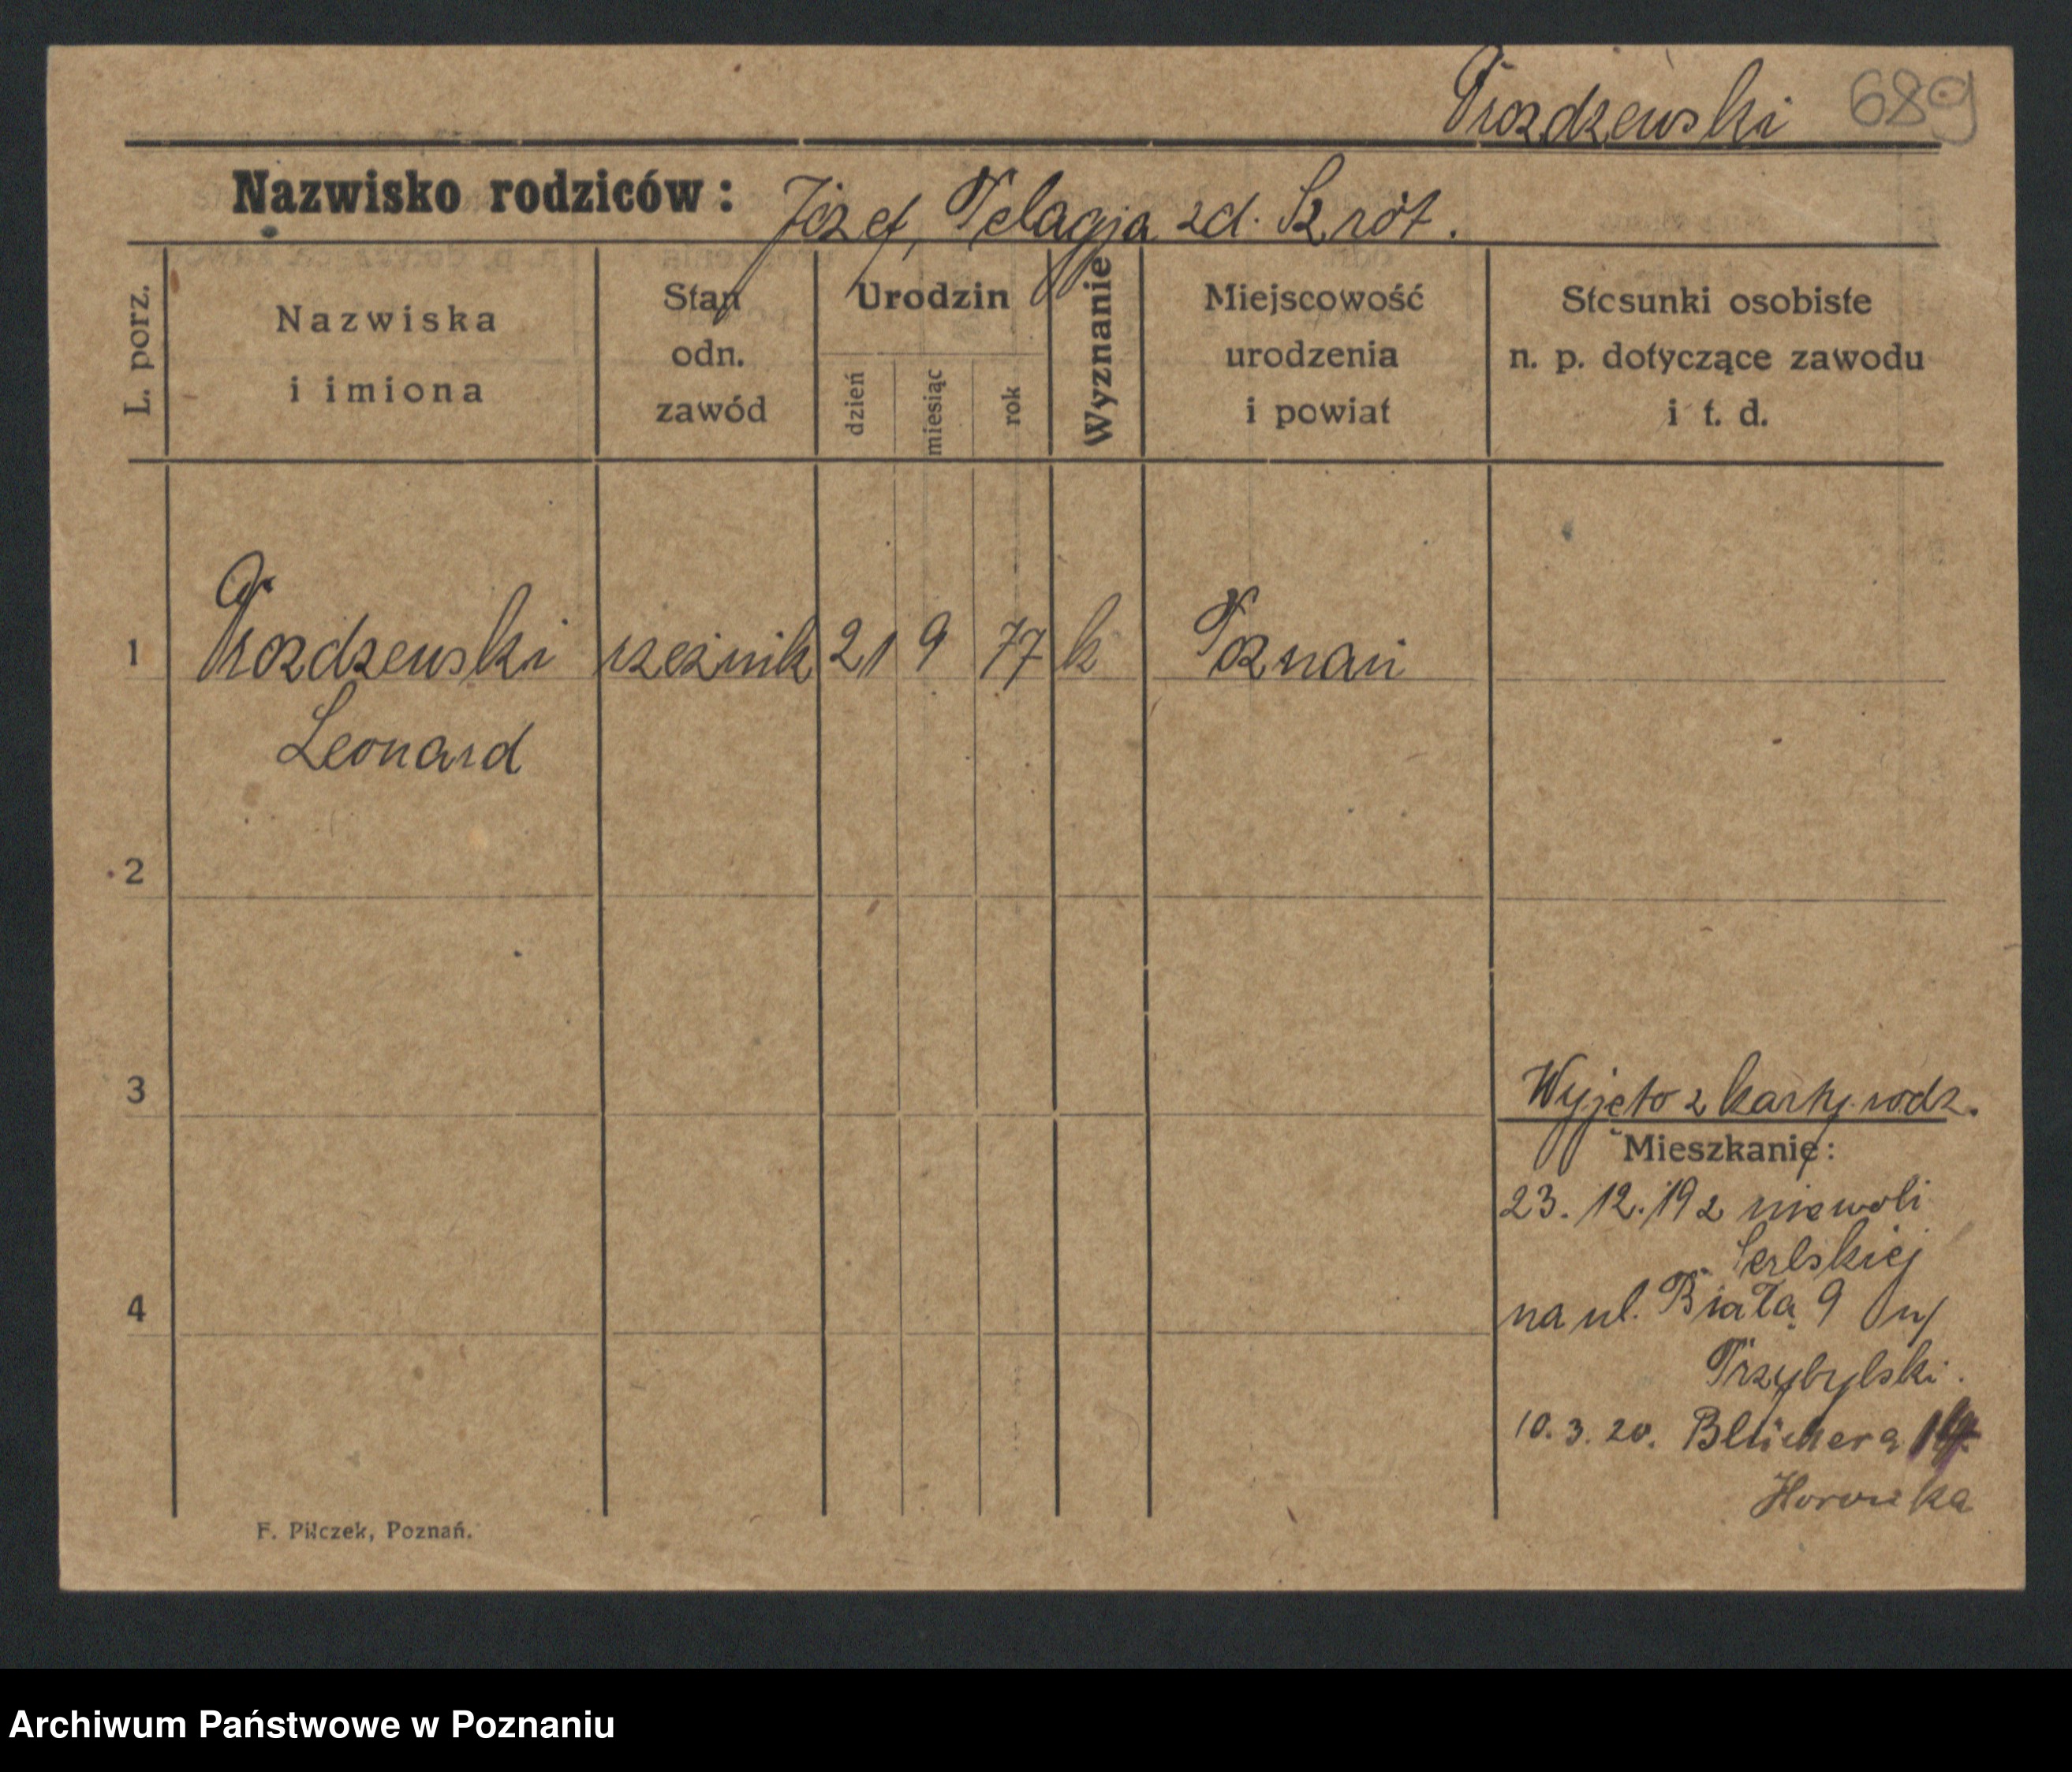 Prozdzewski 689
Nazwisko rodziców: Józef, Pelagja zd. Szrót.
L. porz.
Nazwiska
i imiona
Stan
odn.
zawód
Urodzin
dzień
miesiąc
rok
Wyznanie
Miejscowość
urodzenia
i powiat
Stosunki osobiste
n. p. dotyczące zawodu
i t. d.
1 Prozdzewski rzeźnik 21 9 77 k Poznań
Leonard
2
3
Wyjęto z karty rodz.
Mieszkanie:
23. 12. 19 z niewoli
Serbskiej
4
na ul. Białą 9
Przybylski.
10. 3. 20. Blüchera
F. Pilczek, Poznań.
Archiwum Państwowe w Poznaniu